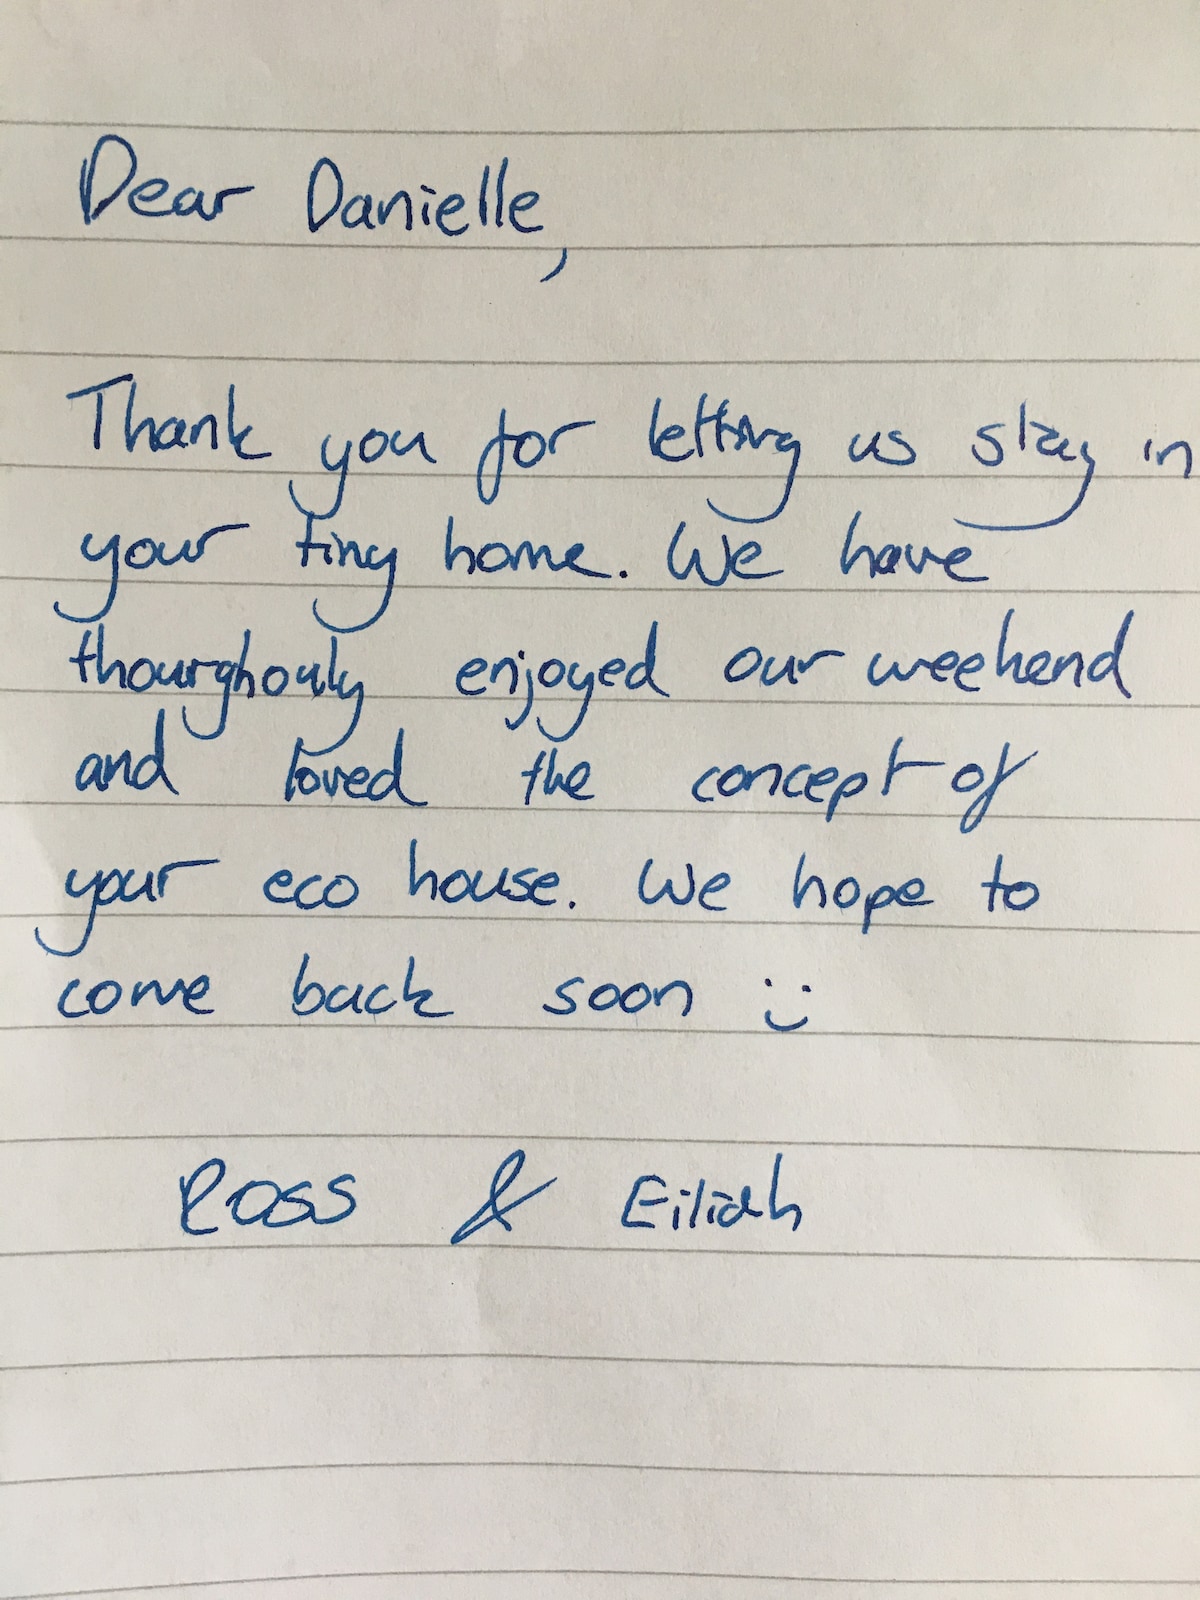 Dear Danielle,
Thank you for letting us stay in
your tiny home. We have
thourghouly enjoyed our weekend
and loved the concept of
your eco house. We hope to
come back soon :)
Ross & Eilidh